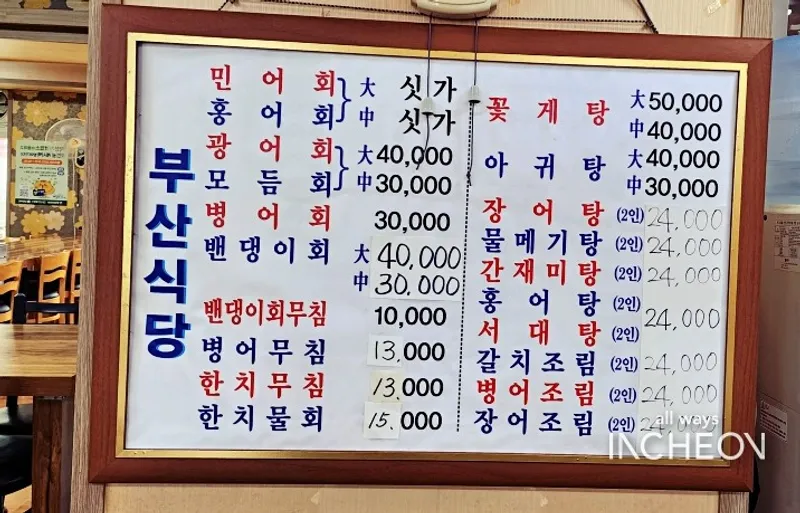 부산식당
민어회 大 싯가
홍어회 中 싯가
광어회 大 40,000
모듬회 中 30,000
병어회 30,000
밴댕이회 大 40,000
中 30,000
밴댕이회무침 10,000
병어무침 13,000
한치무침 13,000
한치물회 15,000
꽃게탕 大 50,000
中 40,000
아귀탕 大 40,000
中 30,000
장어탕 (2인) 24,000
물메기탕 (2인) 24,000
간재미탕 (2인) 24,000
홍어탕 (2인)
24,000
서대탕 (2인)
갈치조림 (2인) 24,000
병어조림 (2인) 24,000
장어조림 (2인) 24,000
all ways
INCHEON